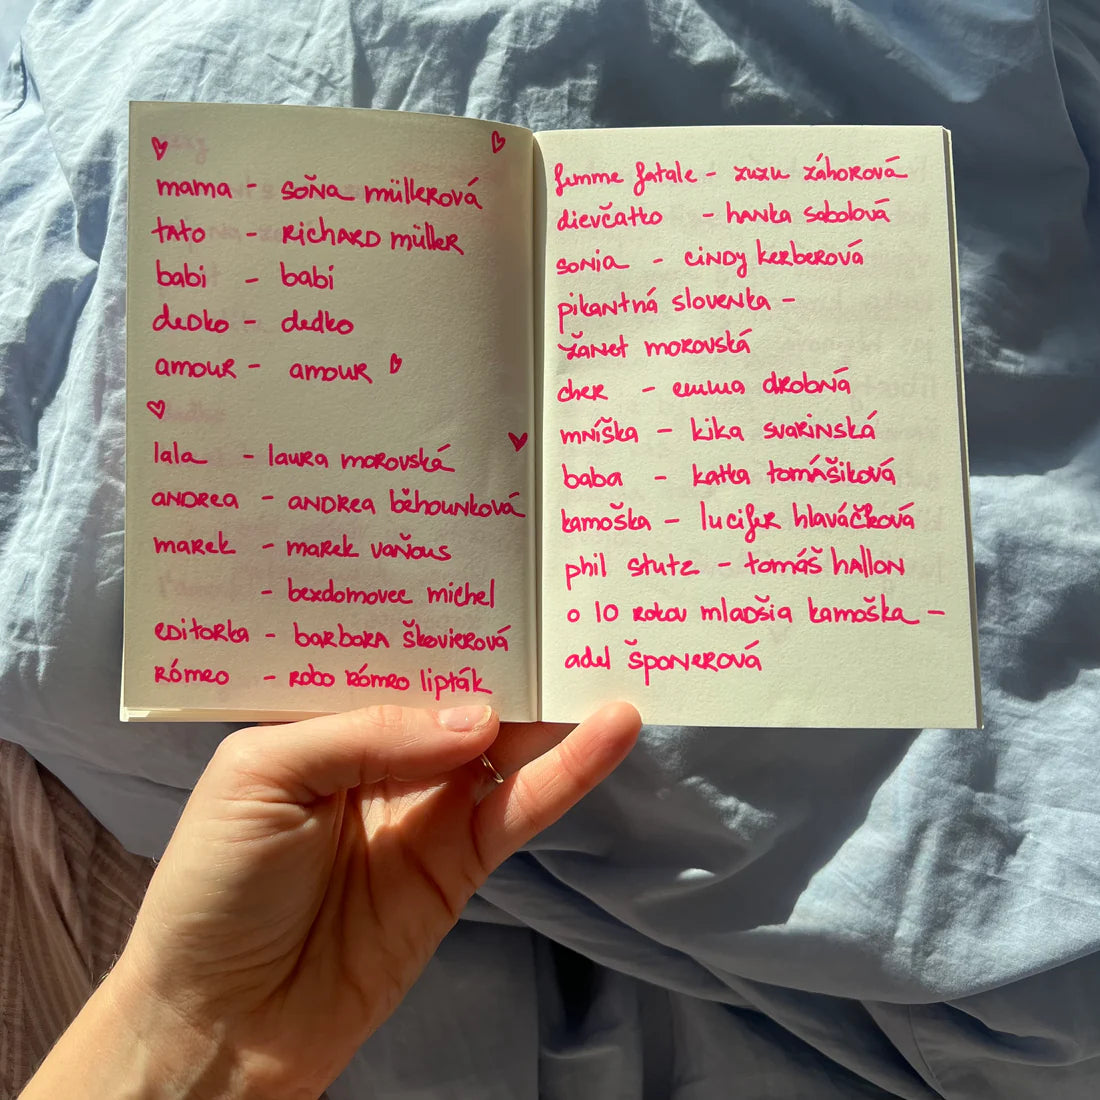 mama - soňa müllerová
tato - richard müller
babi - babi
dedko - dedko
amour - amour
lala - laura morovská
andrea - andrea běhounková
marek - marek vaňous
- bezdomovec michel
editorka - barbora škovierová
rómeo - robo rómeo lipták
femme fatale - zuzu záhorová
dievčatko - hanka sabolová
sonia - cindy kerberová
pikantná slovenka -
žanet morovská
cher - emma drobná
mníška - kika svarinská
baba - katka tomášiková
kamoška - lucifer hlaváčková
phil stutz - tomáš hallon
o 10 rokov mladšia kamoška -
adel šponerová